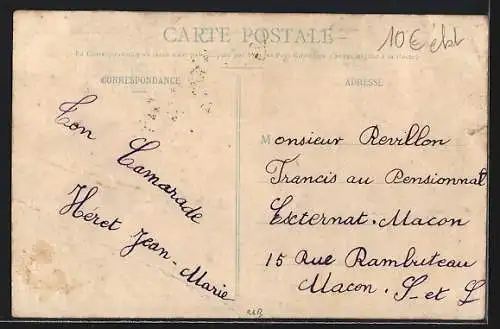 CARTE POSTALE
10€
CORRESPONDANCE
ADRESSE
Ton
Camarade
Héret Jean-Marie
Monsieur Revillon
Francis au Pensionnat
Externat. Macon
15 Rue Rambuteau
Macon. S-et L